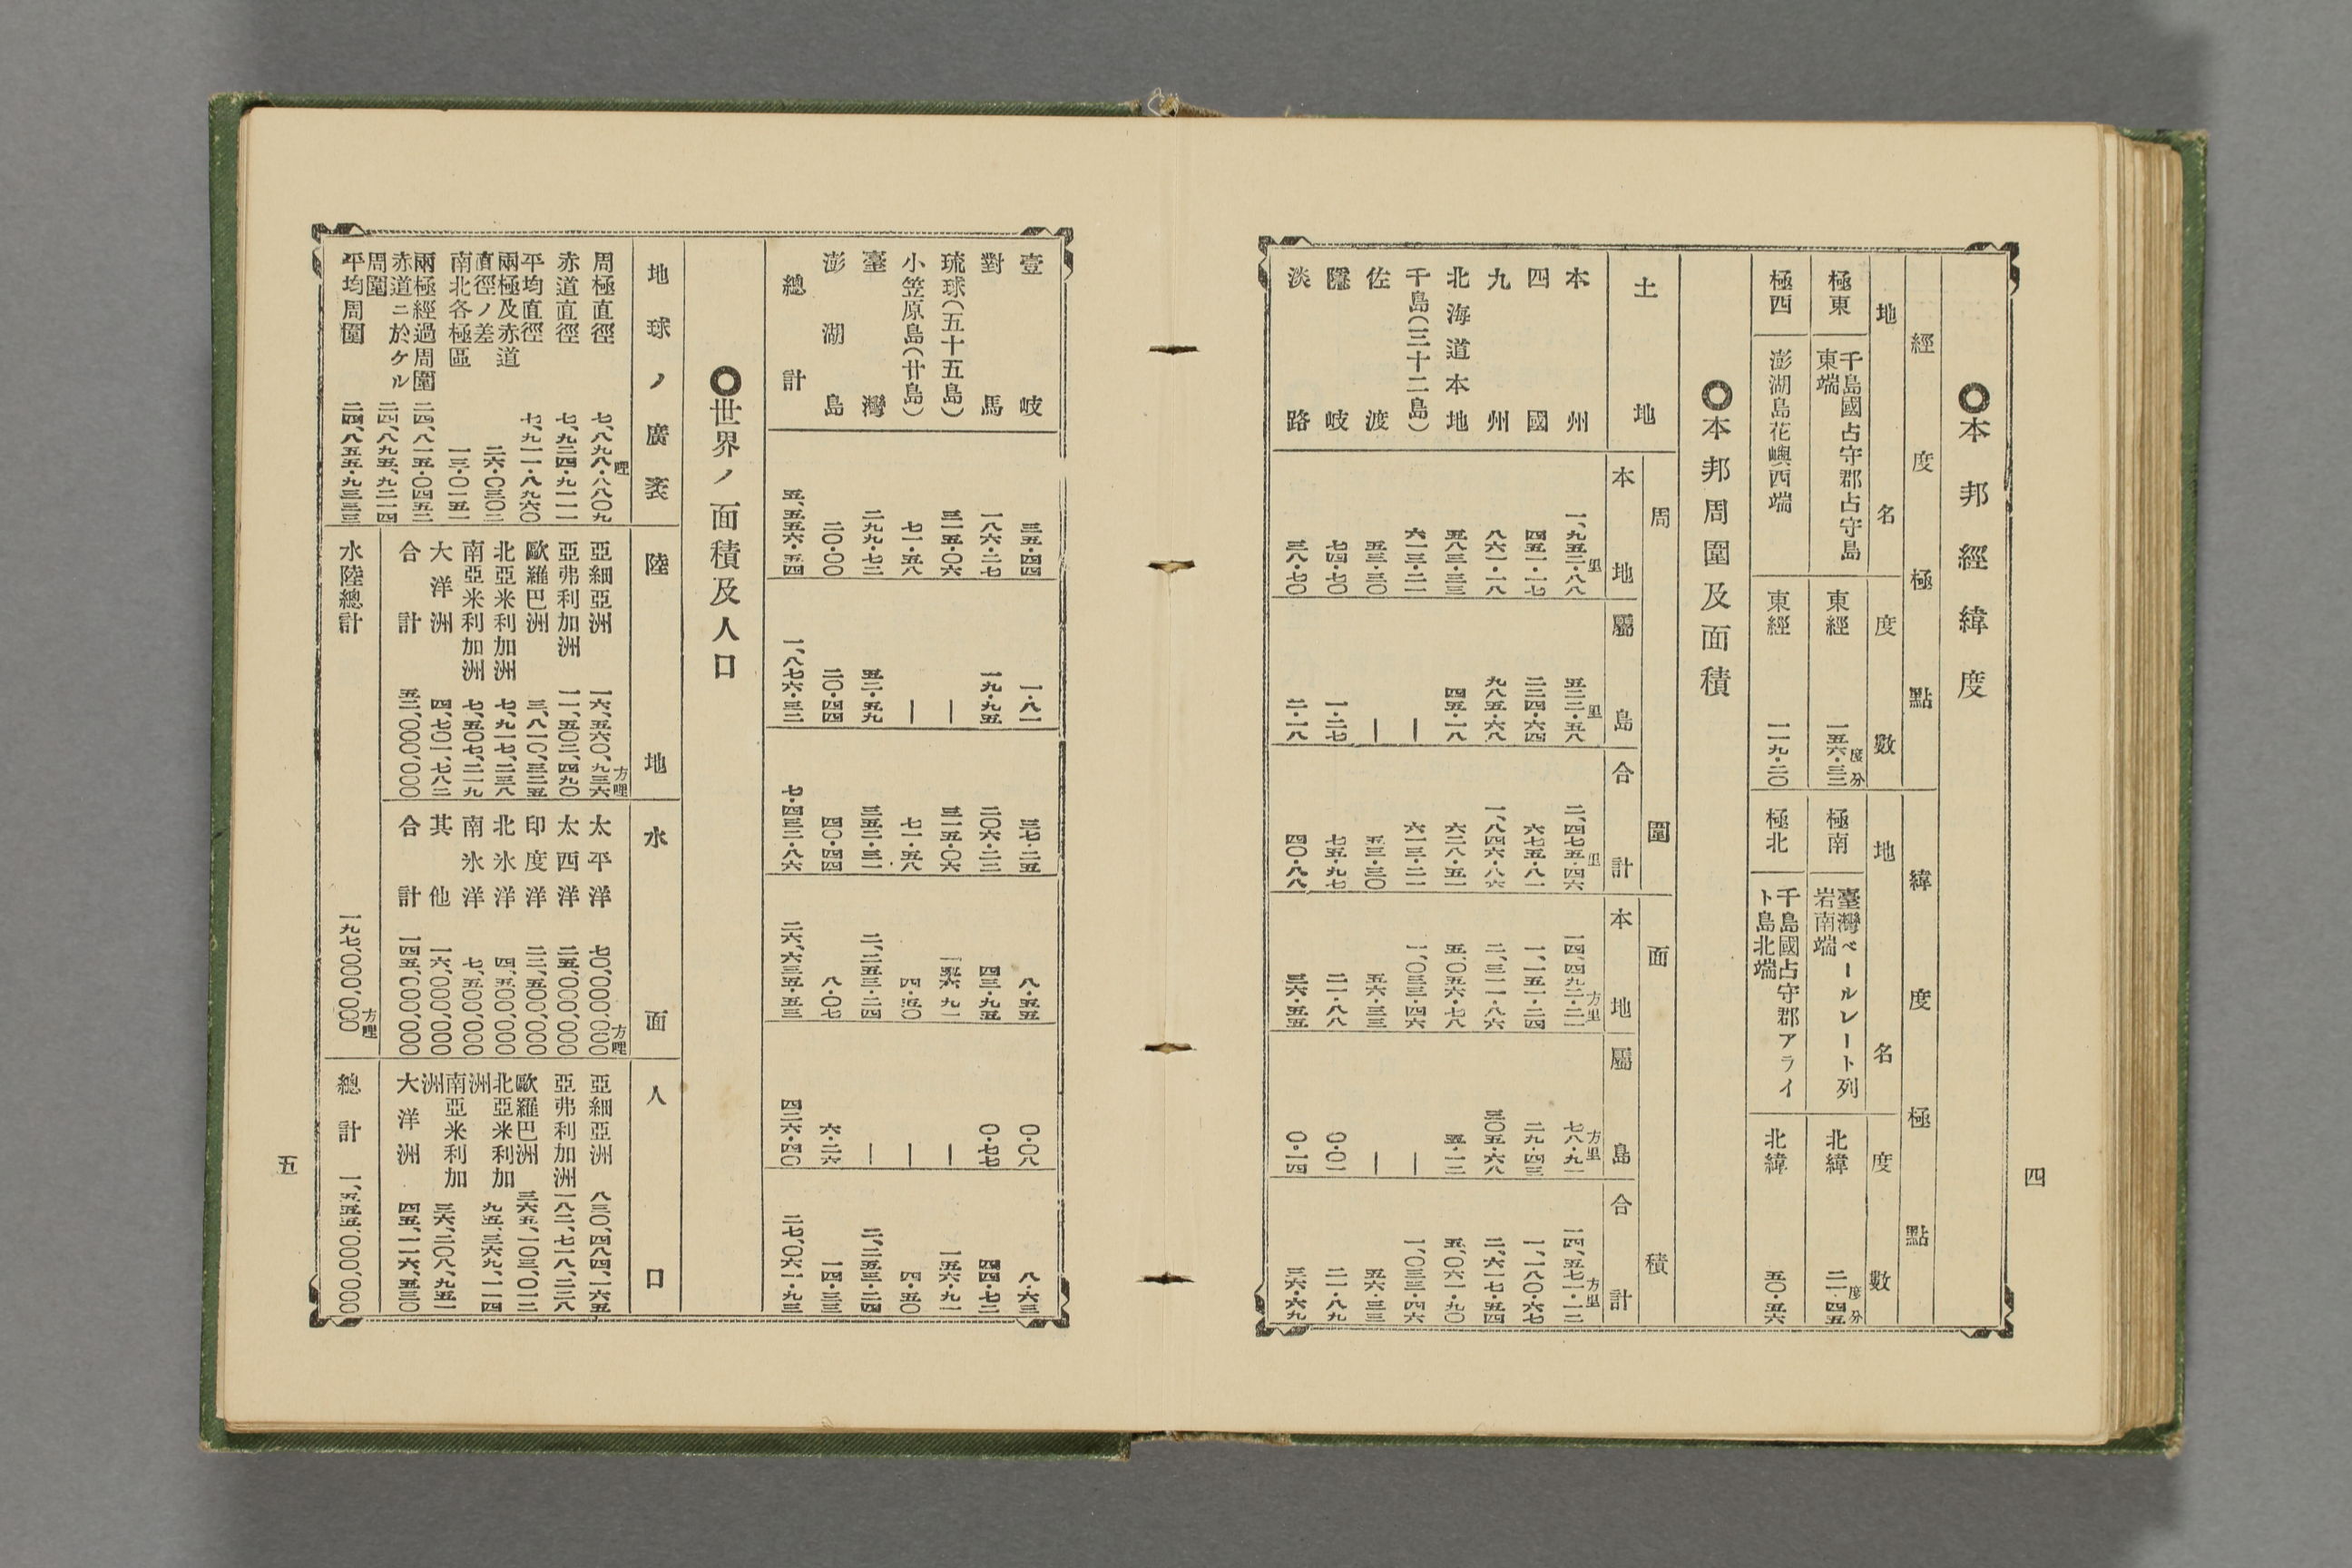 四
◯本邦經緯度
經度極點
緯度極點
地名
度數
地名
度數
極東
千島國占守郡占守島東端
東經
一五六・三二
度分
極南
臺灣ベールレート列岩南端
北緯
二一・四五
度分
極西
澎湖島花嶼西端
東經
一一九・二〇
極北
千島國占守郡アライト島北端
北緯
五〇・五六
◯本邦周圍及面積
土地
周圍
面積
本地
屬島
合計
本地
屬島
合計
本州
一、九五二・八八里
五二二・五八里
二、四七五・四六里
一四、四九二・二一方里
七八・九一方里
一四、五七一・一二方里
四國
四五一・一七
二二四・六四
六七五・八一
一、一五一・二四
二九・四三
一、一八〇・六七
九州
八六一・一八
九八五・六八
一、八四六・八六
二、三一一・八六
三〇五・六八
二、六一七・五四
北海道本地
五八三・三三
四五・一八
六二八・五一
五、〇五六・七八
五・一二
五、〇六一・九〇
千島(三十二島)
六一三・二一
—
六一三・二一
一、〇三三・四六
—
一、〇三三・四六
佐渡
五三・三〇
—
五三・三〇
五六・三三
—
五六・三三
隱岐
七四・七〇
一・二七
七五・九七
二一・八八
〇・〇一
二一・八九
淡路
三八・七〇
二・一八
四〇・八八
三六・五五
〇・一四
三六・六九
壹岐
三五・四四
一・八一
三七・二五
八・五五
〇・〇八
八・六三
對馬
一八六・二七
一九・九五
二〇六・二二
四三・九五
〇・七七
四四・七二
琉球(五十五島)
三一五・〇六
—
三一五・〇六
一五六・九一
—
一五六・九一
小笠原島(廿島)
七一・五八
—
七一・五八
四・五〇
—
四・五〇
臺灣
二九九・七二
五二・五九
三五二・三一
二、二五三・二四
—
二、二五三・二四
澎湖島
二〇・〇〇
二〇・四四
四〇・四四
八・〇七
六・二六
一四・三三
總計
五、五五六・五四
一、八七六・三二
七・四三二・八六
二六、六三五・五三
四二六・四〇
二七、〇六一・九三
◯世界ノ面積及人口
地球ノ廣袤
陸地
水面
人口
周極直徑
七、八九八・八八〇九哩
赤道直徑
七、九二四・九一一一
平均直徑
七、九一一・八九六〇
兩極及赤道直徑ノ差
二六・〇三〇二
南北各極區
一三・〇一五一
兩極經過周圍
二四、八一五・〇四五二
赤道ニ於ケル周圍
二四、八九五、九二一四
平均周圍
二四、八五五・九三三三
亞細亞洲
一六、五六〇、九三六方哩
亞弗利加洲
一一、五〇二、四九〇
歐羅巴洲
三、八一〇、三二五
北亞米利加洲
七、九一七、二三八
南亞米利加洲
七、五〇七、二一九
大洋洲
四、七〇一、七八二
合計
五二、〇〇〇、〇〇〇
太平洋
七〇、〇〇〇、〇〇〇方哩
太西洋
二五、〇〇〇、〇〇〇
印度洋
二二、五〇〇、〇〇〇
北氷洋
四、五〇〇、〇〇〇
南氷洋
七、五〇〇、〇〇〇
其他
一六、〇〇〇、〇〇〇
合計
一四五、〇〇〇、〇〇〇
水陸總計
一九七、〇〇〇、〇〇〇方哩
亞細亞洲
八三〇、四八四、一六五
亞弗利加洲
一八二、七一八、二二八
歐羅巴洲
三六五、一〇三、〇一二
北亞米利加洲
九五、三六九、一一四
南亞米利加洲
三六、二〇八、九五一
大洋洲
四五、一一六、五三〇
總計
一、五五五、〇〇〇、〇〇〇
五